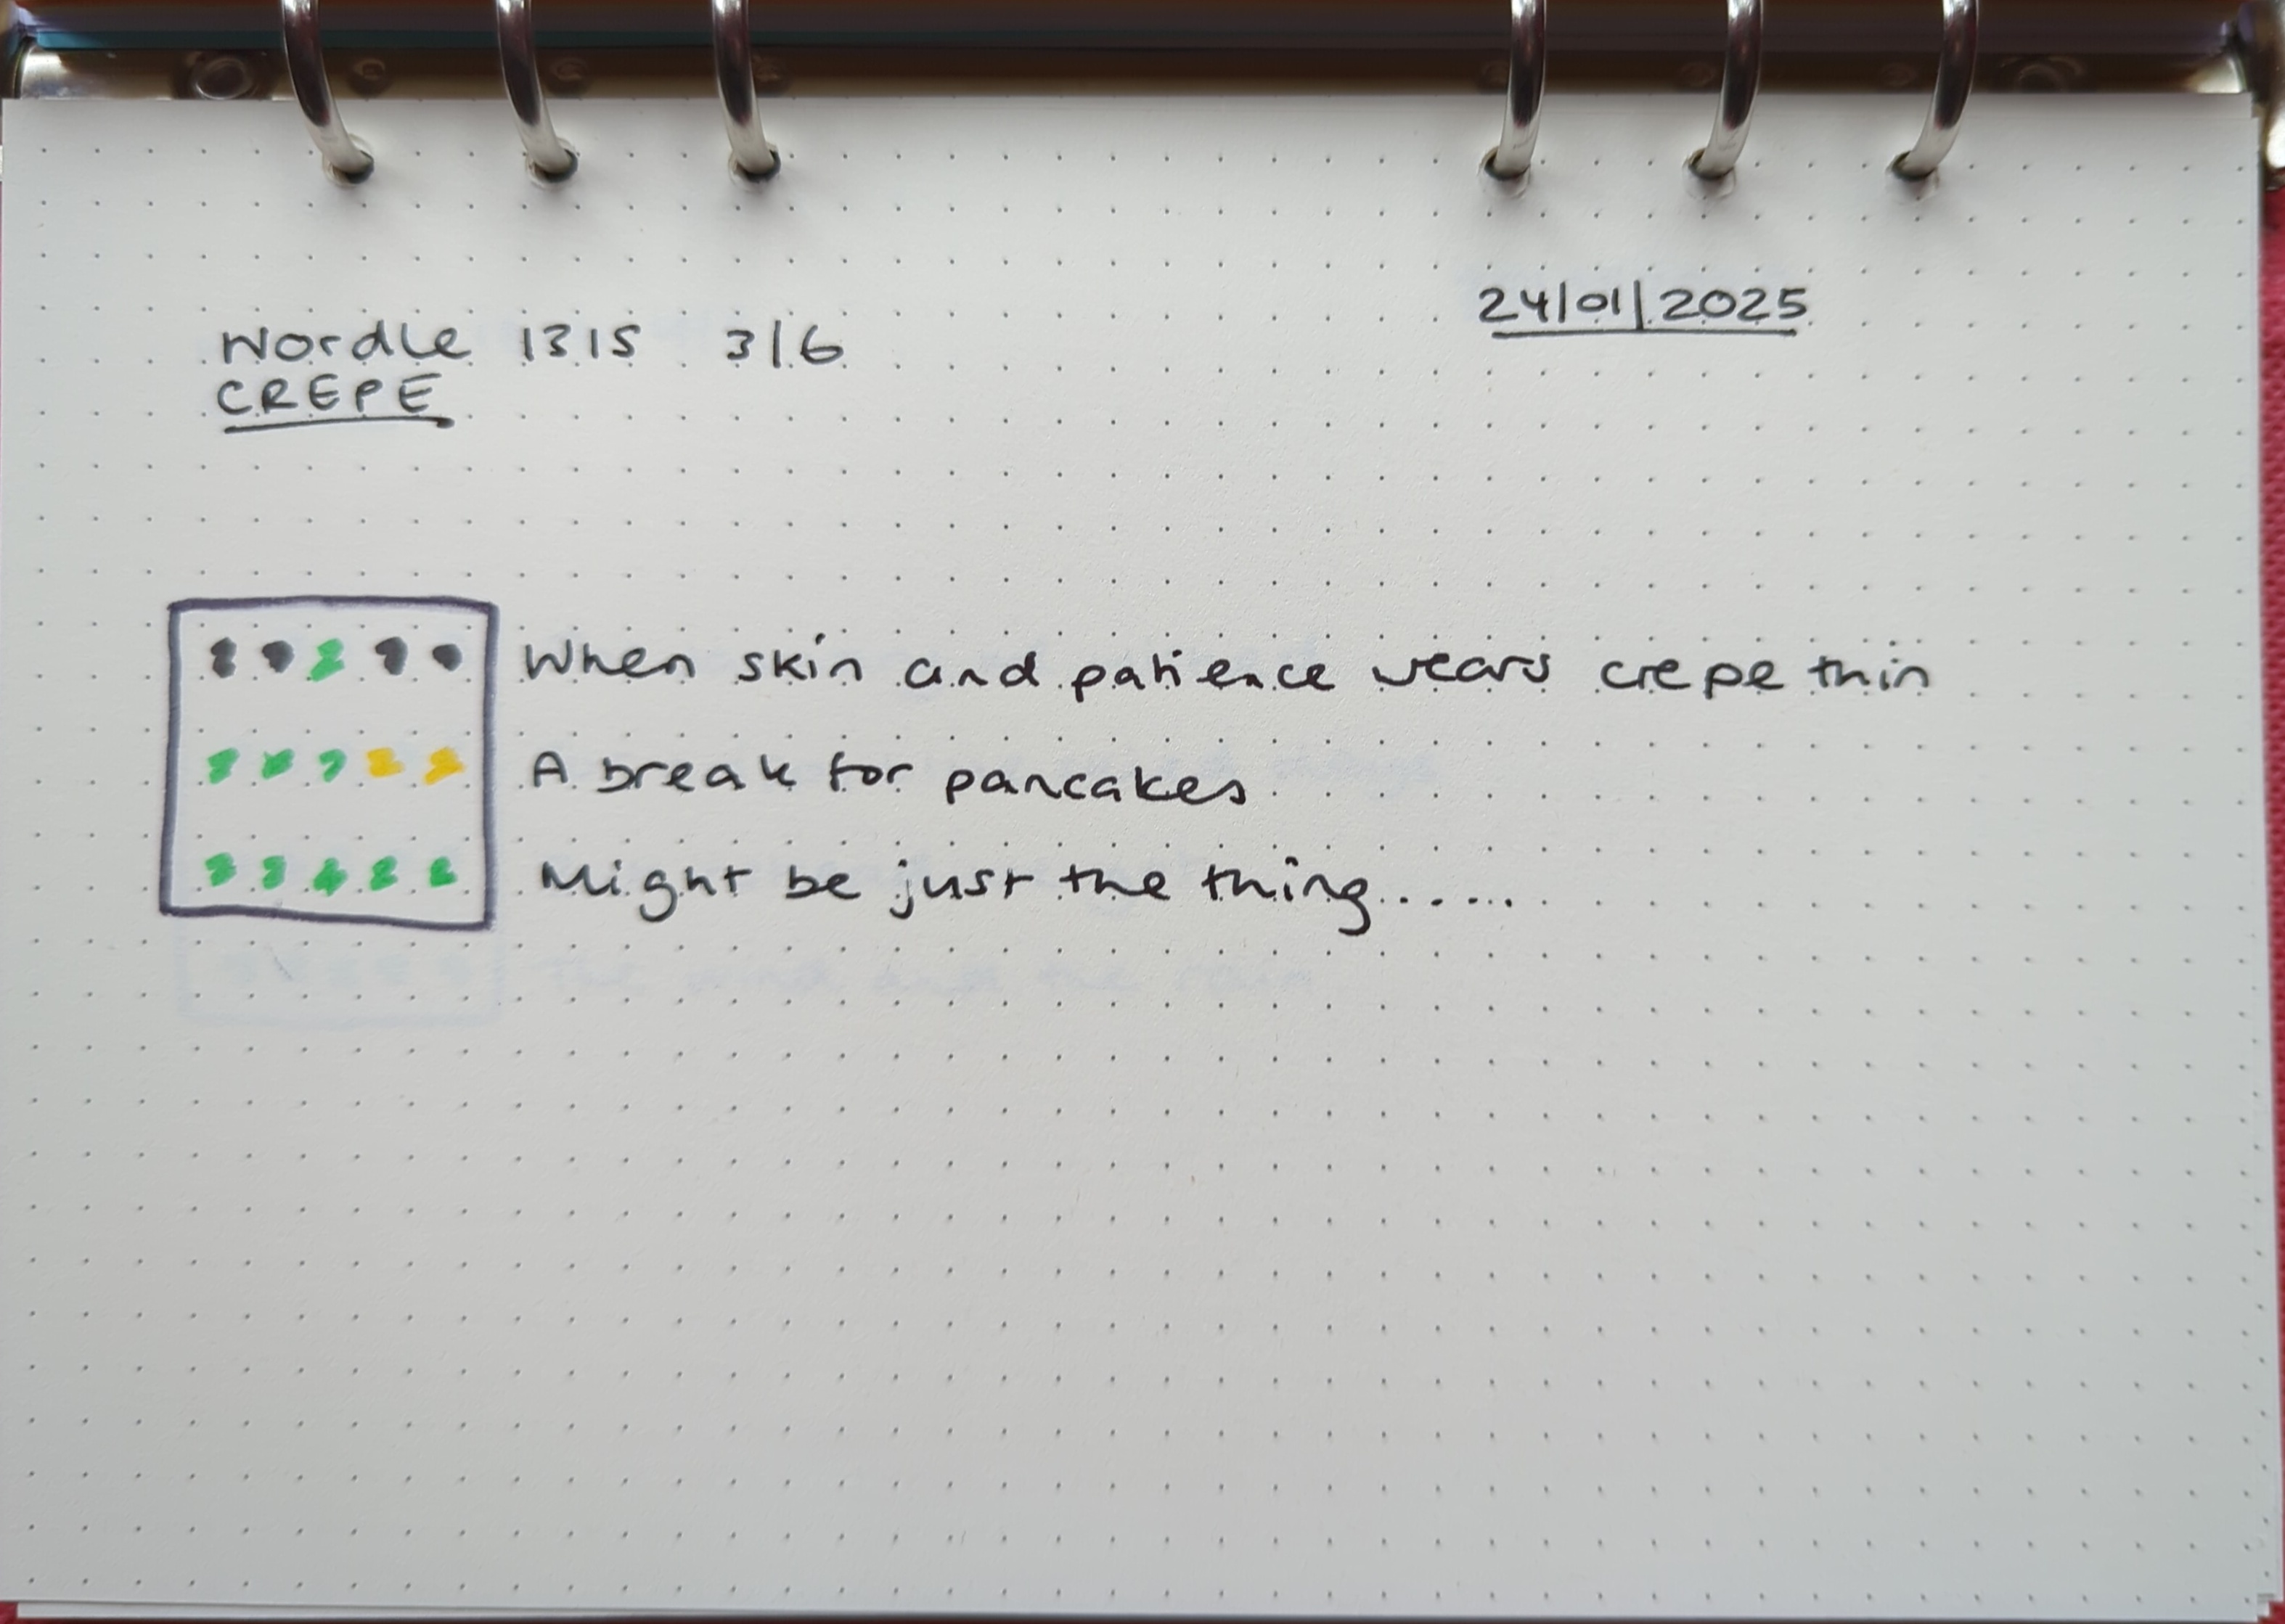 24/01/2025
Wordle 1315 3/6
CREPE
When skin and patience wears crepe thin
A break for pancakes
Might be just the thing......
The wind and the rain